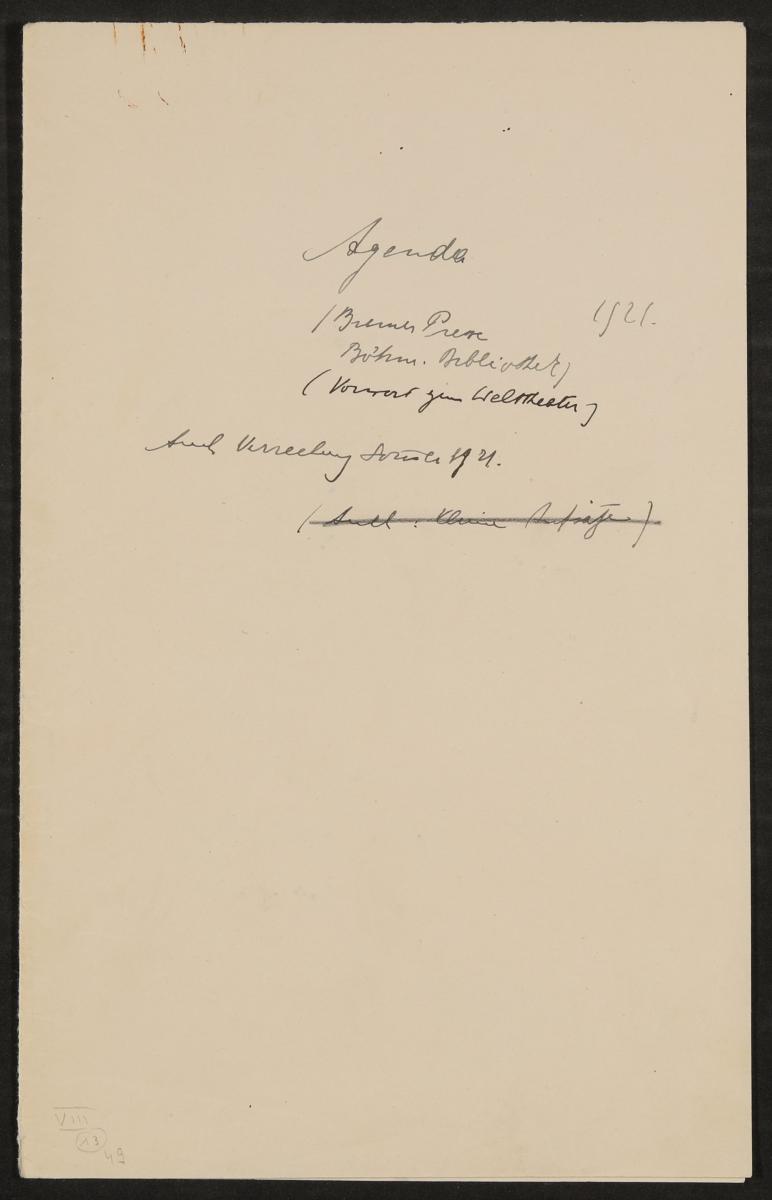 Agenda
(Bremer Presse 1921.
Böhm. Bibliothek)
(Vorwort zum Welttheater)
Auch Verrechnung 1921.
(Auch: Kleine Aufsätze)
VIII
13
49